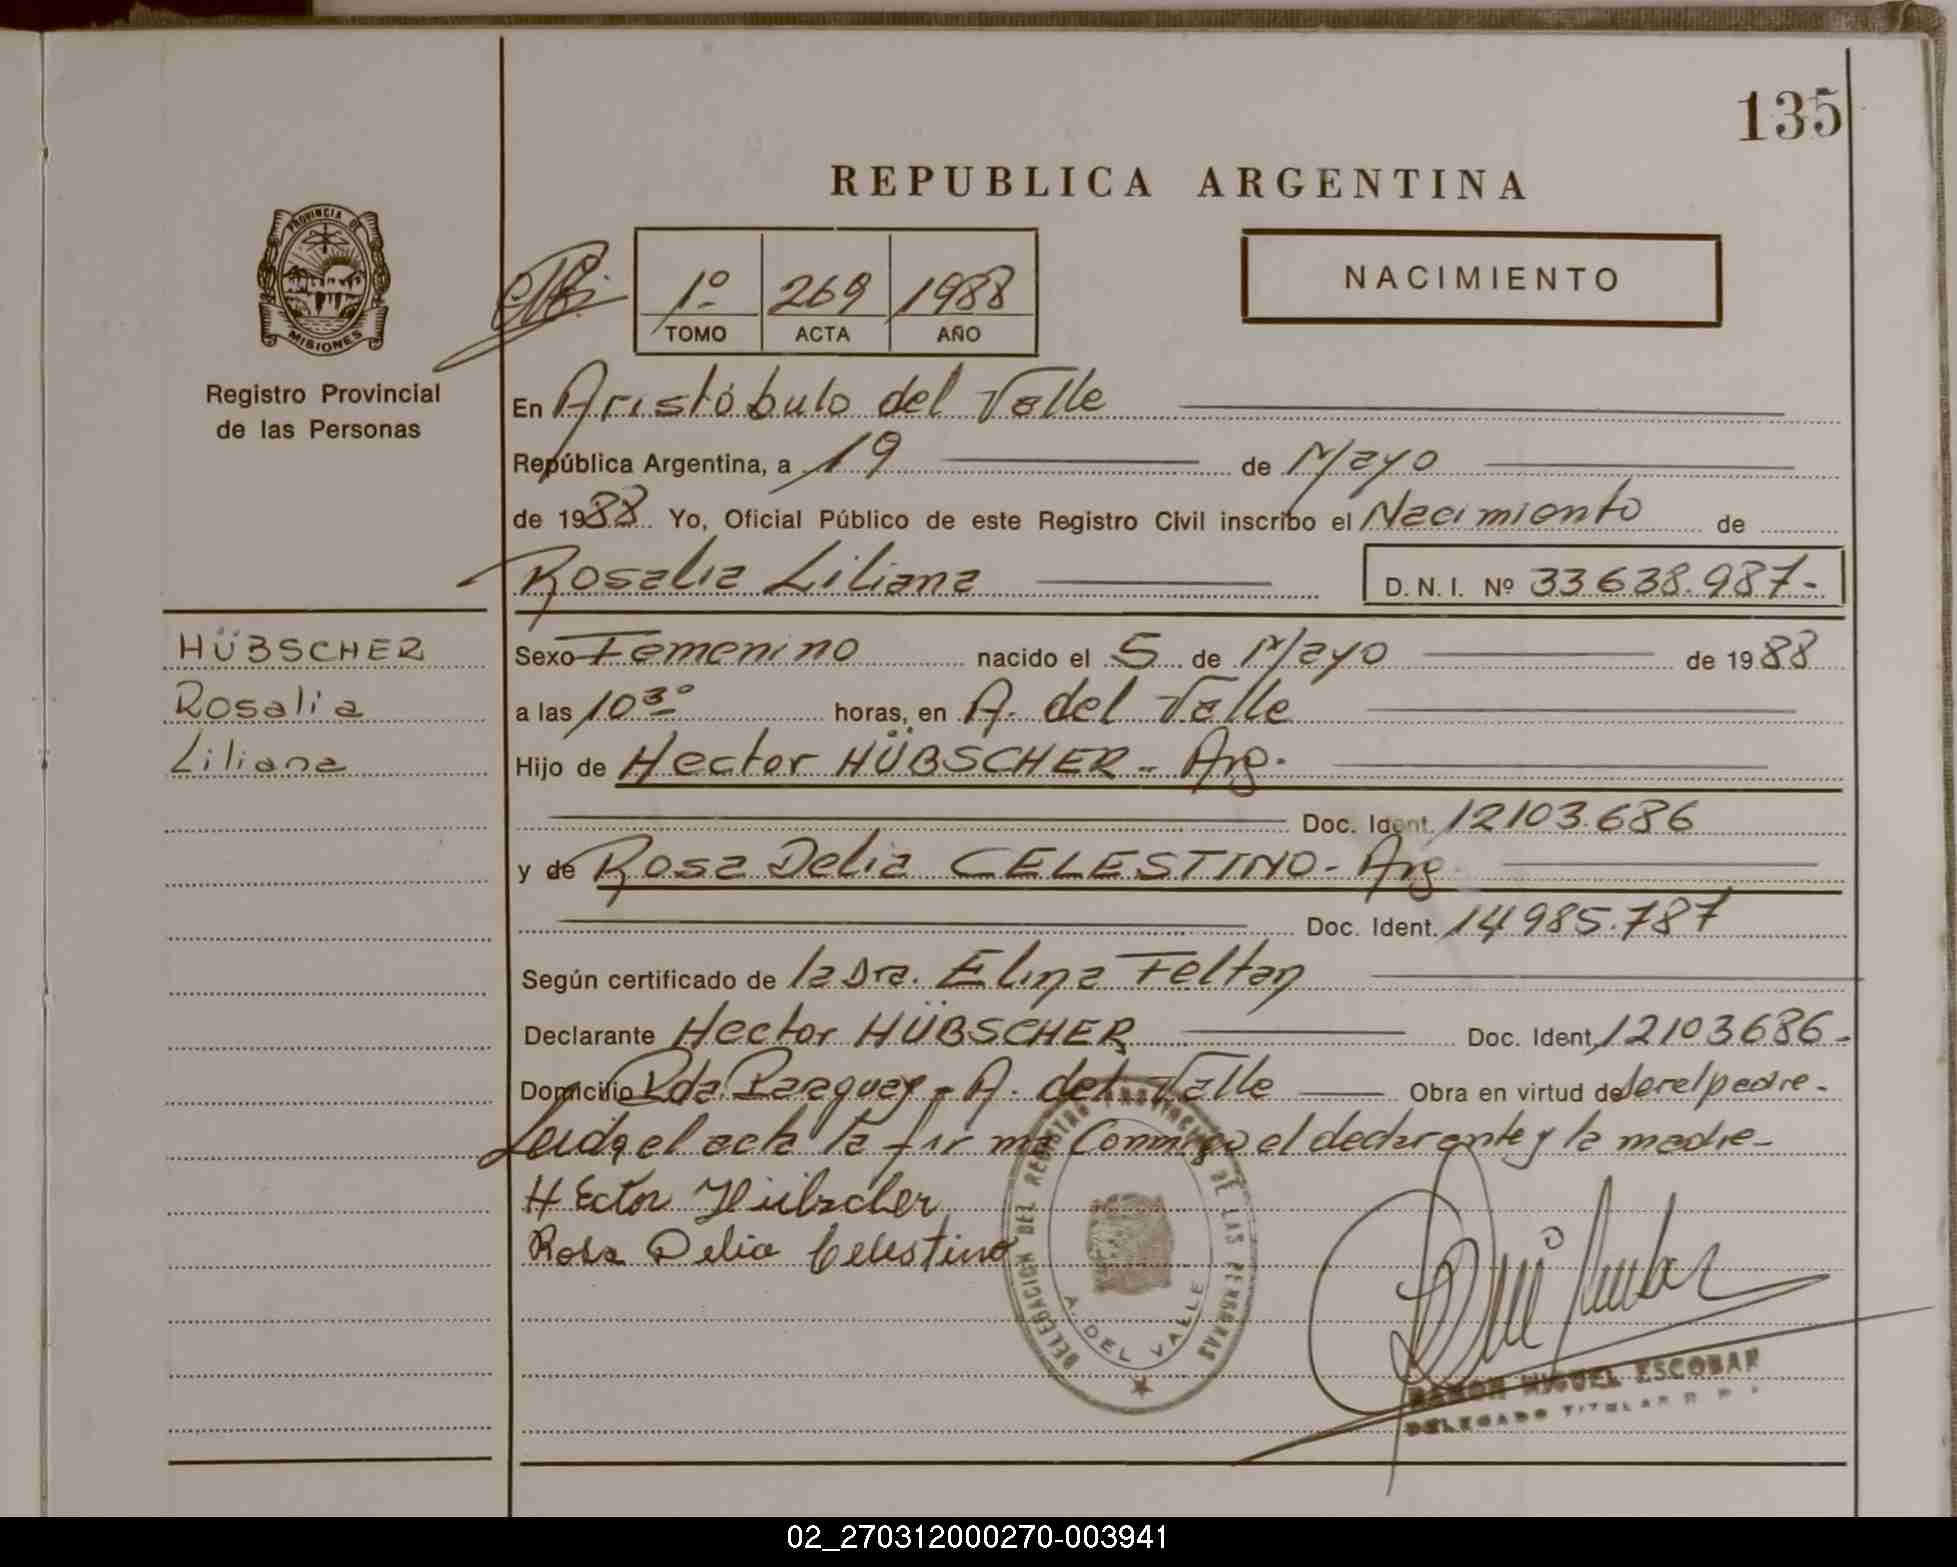 135
REPUBLICA ARGENTINA
PROVINCIA DE
MISIONES
Registro Provincial
de las Personas
1º 269 1988
TOMO ACTA AÑO
NACIMIENTO
En Aristóbulo del Valle
República Argentina, a 19 de Mayo
de 1988 Yo, Oficial Público de este Registro Civil inscribo el Nacimiento de
Rosalia Liliana D.N.I. Nº 33.638.987-
HÜBSCHER
Rosalia
Liliana
Sexo Femenino nacido el 5 de Mayo de 1988
a las 10 30 horas, en A. del Valle
Hijo de Hector HÜBSCHER - Arg.
Doc. Ident. 12103.686
y de Rosa Delia CELESTINO - Arg
Doc. Ident. 14985.787
Según certificado de la Dra. Elina Feltan
Declarante Hector HÜBSCHER Doc. Ident. 12103686-
Domicilio Pda. Paraguay - A. del Valle Obra en virtud de ser el padre-
Leida el acta la firma Conmigo el declarante y la madre-
Hector Hübscher
Rosa Delia Celestino
DELEGACION DEL REGISTRO PROVINCIAL DE LAS PERSONAS
A. DEL VALLE
RAMON MIGUEL ESCOBAR
DELEGADO TITULAR
02_270312000270-003941